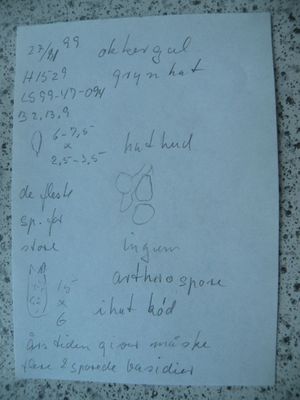 27/11 99 okkergul
H1529 gryn hat
LS99-47-094
B2,13,9
6-7,5
x hathud
2,5-3,5
de fleste
sp. før
store ingen
arthrospore
15
x i hat kød
6
årstiden giver måske
flere 2 sporede basidier